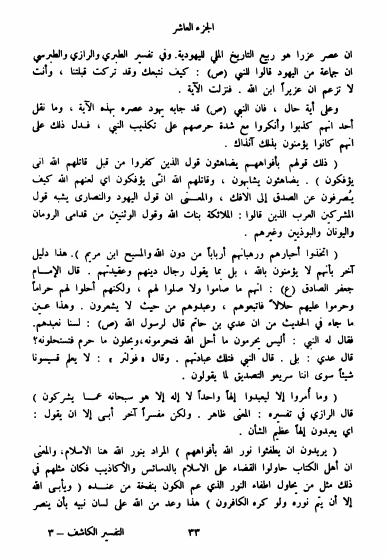 الجزء العاشر
ان عصر عزرا هو ربيع التاريخ الملي لليهودية. وفي تفسير الطبري والرازي والطبرسي
ان جماعة من اليهود قالوا للنبي (ص) : كيف نتبعك وقد تركت قبلتنا ، وأنت
لا تزعم ان عزيراً ابن الله . فنزلت الآية .
وعلى أية حال ، فان النبي (ص) قد جابه يهود عصره بهذه الآية ، وما نقل
أحد انهم كذبوا وأنكروا مع شدة حرصهم على تكذيب النبي ، فدل ذلك على
انهم كانوا يؤمنون بذلك آنذاك .
( ذلك قولهم بأفواههم يضاهئون قول الذين كفروا من قبل قاتلهم الله انى
يؤفكون ) . يضاهئون يشابهون ، وقاتلهم الله انّى يؤفكون اي لعنهم الله كيف
يُصرفون عن الصدق إلى الافك ، والمعنى ان قول اليهود والنصارى يشبه قول
المشركين العرب الذين قالوا : الملائكة بنات الله وقول الوثنيين من قدامى الرومان
واليونان والبوذيين وغيرهم .
( اتخذوا أحبارهم ورهبانهم أرباباً من دون الله والمسيح ابن مريم ) . هذا دليل
آخر بأنهم لا يؤمنون بالله ، بل بما يقول رجال دينهم وعقيدتهم . قال الإمام
جعفر الصادق (ع) : انهم ما صاموا ولا صلوا لهم ، ولكنهم أحلوا لهم حراماً
وحرموا عليهم حلالاً فاتبعوهم ، وعبدوهم من حيث لا يشعرون . وهذا عين
ما جاء في الحديث من ان عدي بن حاتم قال لرسول الله (ص) : لسنا نعبدهم.
فقال له النبي : أليس يحرمون ما أحل الله فتحرمونه، ويحلون ما حرم فتستحلونه؟
قال عدي : بلى . قال النبي فتلك عبادتهم . وقال « فولتر » : لا يعلم قسيسونا
شيئاً سوى اننا سريعو التصديق لما يقولون .
( وما أُمروا إلا ليعبدوا إلهاً واحداً لا إله إلا هو سبحانه عما يشركون )
قال الرازي في تفسيره : المعنى ظاهر . ولكن مفسراً آخر أبى إلا ان يقول :
اي يعبدون إلهاً عظيم الشأن .
( يريدون ان يطفئوا نور الله بأفواههم ) المراد بنور الله هنا الاسلام، والمعنى
ان أهل الكتاب حاولوا القضاء على الاسلام بالدسائس والأكاذيب فكان مثلهم في
ذلك مثل من يحاول اطفاء النور الذي عم الكون بنفخة من عنده ( ويأبى الله
إلا أن يتم نوره ولو كره الكافرون ) هذا وعد من الله على لسان نبيه بأن ينصر
٣٣
التفسير الكاشف – ٣